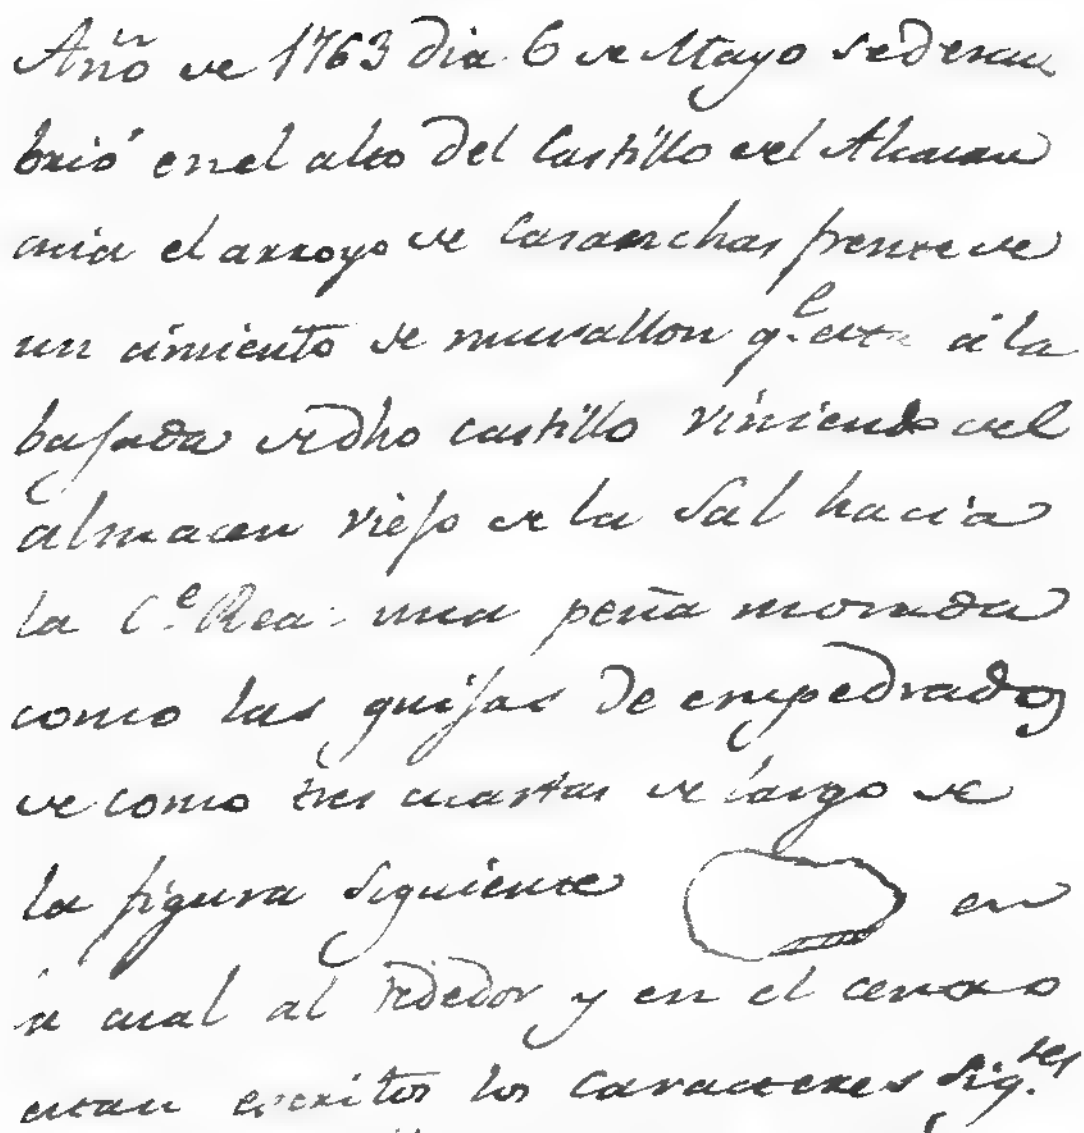 Año de 1763 dia 6 de Mayo se descu
brió en el alto del Castillo del Alcacar
acia el arroyo de Cararnchas frente de
un cimiento de murallon q.e esta á la
bajada de dho castillo viniendo del
almacen viejo de la Sal hacia
la C.e Rea: una peña morada
como las quijas de empedrados
de como tres cuartas de largo de
la figura siguiente en
la cual al rededor y en el centro
estan escritos los caracteres sig.tes